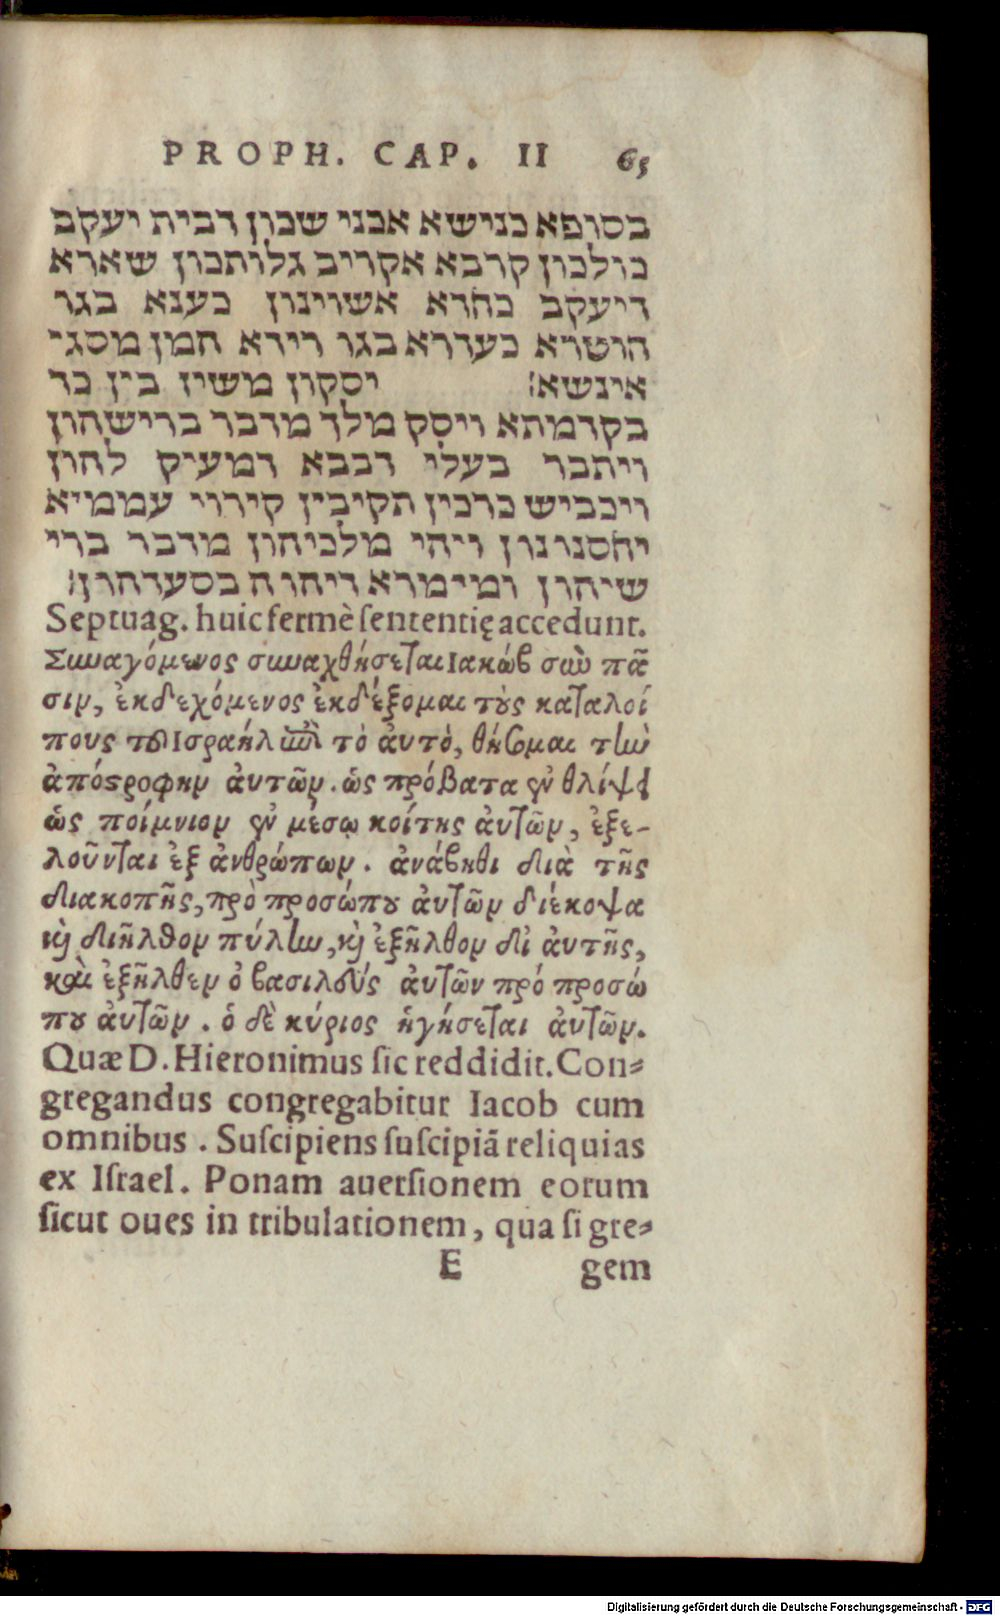 PROPH. CAP. II 65
בסופא כנישא אכני שכון דבית יעקב
כולכון קרבא אקריב גלותכון שארא
דיעקב כחדא אשוינון כענא בגו
הוטרא כעדרא בגו דירא תמן מסגי
אינשא׃ יסקון משיזבין כד
בקדמתא ויסק מלך מדבר ברישהון
ויתבר בעלי דבבא דמעיק להון
ויכביש כרכין תקיפין קירוי עממיא
יחסנונון ויהי מלכיהון מדבר ברי
שיהון ומימרא דיהוה בסעדהון׃
Septuag. huic fermè ſententię accedunt.
Συναγόμενος συναχθήσεται Ιακώβ σὺν πᾶ
σιν, ἐκδεχόμενος ἐκδέξομαι τοὺς καταλοί
πους τοῦ Ισραήλ ἐπὶ τὸ ἀυτὸ, θήσομαι τὴν
ἀπόστροφην ἀυτῶν. ὡς πρόβατα ἐν θλίψει
ὡς ποίμνιον ἐν μέσῳ κοίτης ἀυτῶν, ἐξε-
λοῦνται ἐξ ἀνθρώπων. ἀνάβηθι διὰ τῆς
διακοπῆς, πρὸ προσώπου ἀυτῶν διέκοψα
καὶ διῆλθον πύλην, καὶ ἐξῆλθον δι ἀυτῆς,
καὶ ἐξῆλθεν ὁ βασιλεύς ἀυτῶν πρό προσώ
που ἀυτῶν. ὁ δὲ κύριος ἡγήσεται ἀυτῶν.
Quæ D. Hieronimus ſic reddidit. Con-
gregandus congregabitur Iacob cum
omnibus. Suſcipiens ſuſcipiā reliquias
ex Iſrael. Ponam auerſionem eorum
ſicut oues in tribulationem, qua ſi gre-
E gem
Digitalisierung gefördert durch die Deutsche Forschungsgemeinschaft - DFG